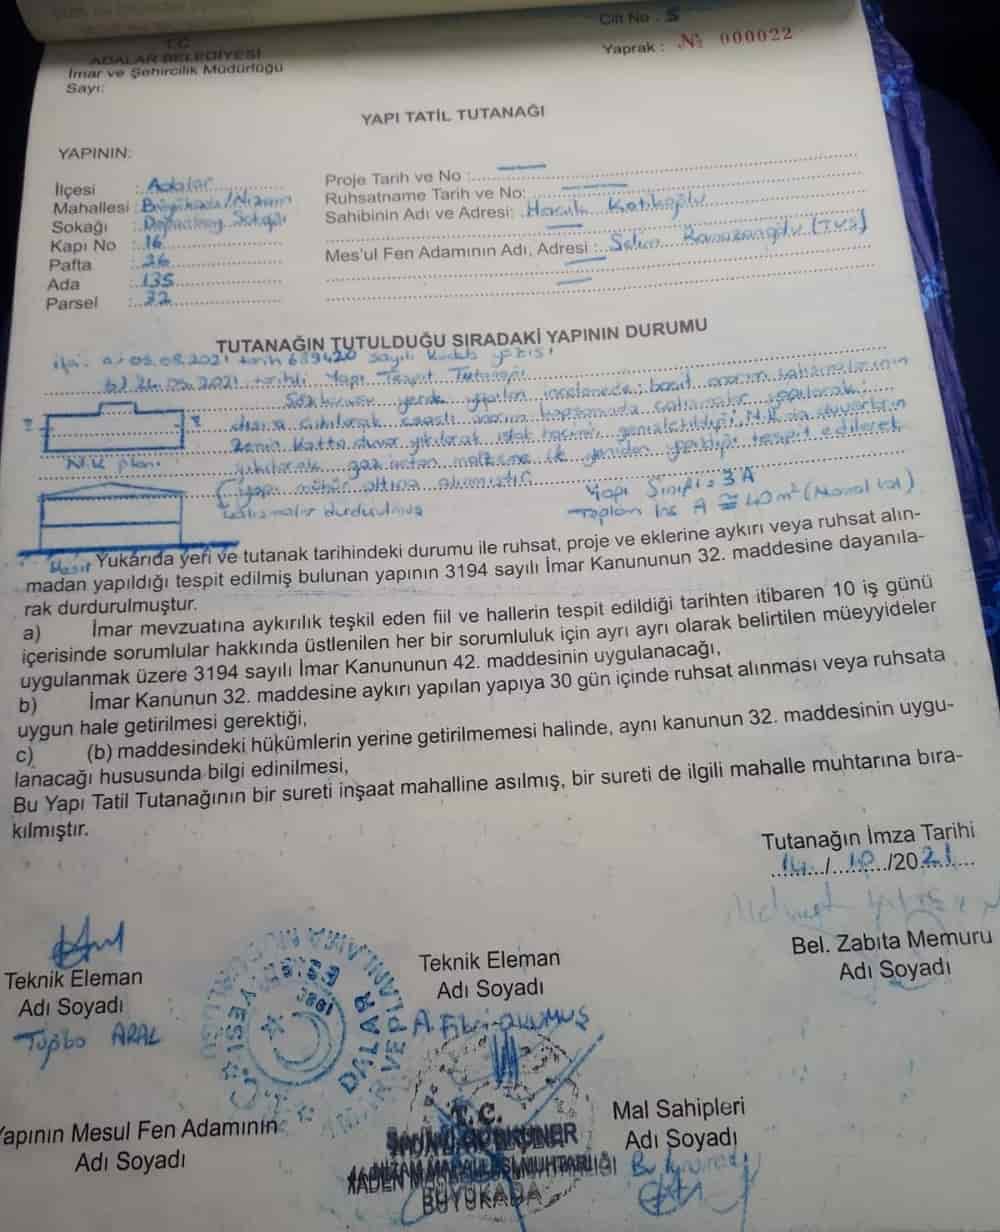 Cilt No : 5
Yaprak : № 000022
T.C.
ADALAR BELEDİYESİ
İmar ve Şehircilik Müdürlüğü
Sayı:
YAPI TATİL TUTANAĞI
YAPININ:
İlçesi : Adalar
Mahallesi : Büyükada/Nizam
Sokağı : Sokağı
Kapı No : 16
Pafta : 26
Ada : 135
Parsel : 32
Proje Tarih ve No :
Ruhsatname Tarih ve No:
Sahibinin Adı ve Adresi:
Mes'ul Fen Adamının Adı, Adresi : Selim
TUTANAĞIN TUTULDUĞU SIRADAKİ YAPININ DURUMU
a) 05.08.2021 tarih 689420 sayılı yazısı
b) 2021 tarihli Yapı Tespit Tutanağı
yerde yapılan incelemede; basit onarım
dışına çıkılarak esaslı onarım kapsamında çalışmalar yapılarak;
Zemin Katta duvar yıkılarak ıslak hacmin genişletildiği, N.K. da duvarların
N.K planı
yıkılarak gaz beton malzeme ile yeniden yapıldığı tespit edilerek
yapı mühür altına alınmıştır.
Çalışmalar durdurulmuş
Yapı Sınıfı : 3 A
Toplam İnş A ≅ 40 m²
Yukarıda yeri ve tutanak tarihindeki durumu ile ruhsat, proje ve eklerine aykırı veya ruhsat alın-
madan yapıldığı tespit edilmiş bulunan yapının 3194 sayılı İmar Kanununun 32. maddesine dayanıla-
rak durdurulmuştur.
a) İmar mevzuatına aykırılık teşkil eden fiil ve hallerin tespit edildiği tarihten itibaren 10 iş günü
içerisinde sorumlular hakkında üstlenilen her bir sorumluluk için ayrı ayrı olarak belirtilen müeyyideler
uygulanmak üzere 3194 sayılı İmar Kanununun 42. maddesinin uygulanacağı,
b) İmar Kanunun 32. maddesine aykırı yapılan yapıya 30 gün içinde ruhsat alınması veya ruhsata
uygun hale getirilmesi gerektiği,
c) (b) maddesindeki hükümlerin yerine getirilmemesi halinde, aynı kanunun 32. maddesinin uygu-
lanacağı hususunda bilgi edinilmesi,
Bu Yapı Tatil Tutanağının bir sureti inşaat mahalline asılmış, bir sureti de ilgili mahalle muhtarına bıra-
kılmıştır.
Tutanağın İmza Tarihi
14/10/2021
Mehmet
Bel. Zabıta Memuru
Adı Soyadı
Teknik Eleman
Adı Soyadı
ARAL
Teknik Eleman
Adı Soyadı
Yapının Mesul Fen Adamının
Adı Soyadı
T.C.
BÜYÜKADA
Mal Sahipleri
Adı Soyadı